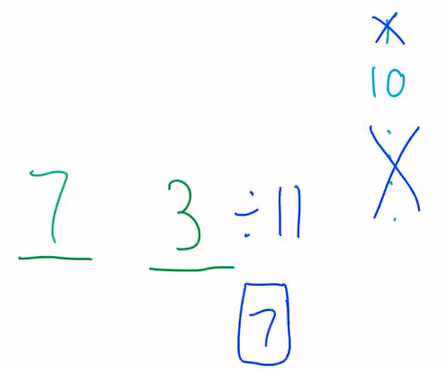 10
7 3 ÷ 11
7